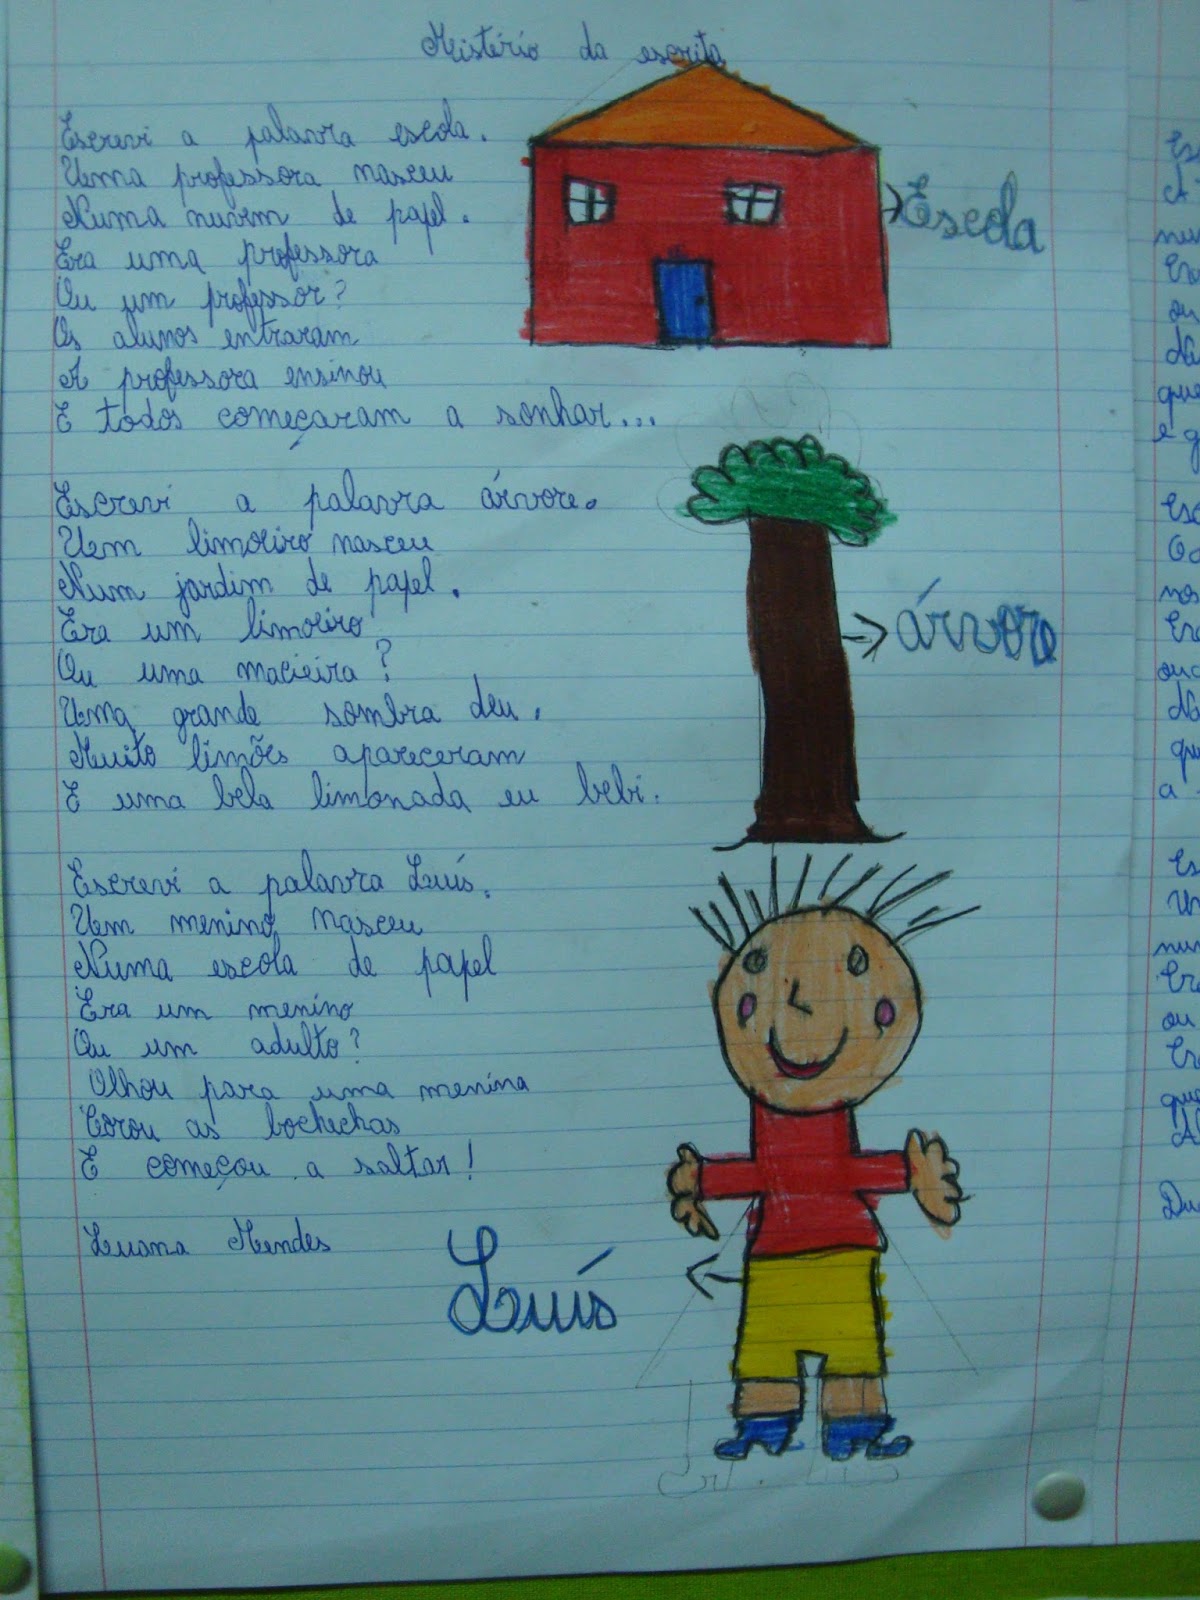 Mistério da escrita
Escrevi a palavra escola.
Uma professora nasceu
Numa nuvem de papel.
Era uma professora
Ou um professor?
Os alunos entraram
A professora ensinou
E todos começaram a sonhar...
Escola
Escrevi a palavra árvore.
Um limoeiro nasceu
Num jardim de papel.
Era um limoeiro
Ou uma macieira?
Uma grande sombra deu.
Muito limões apareceram
E uma bela limonada eu bebi.
árvore
Escrevi a palavra Luís.
Um menino nasceu
Numa escola de papel
Era um menino
Ou um adulto?
Olhou para uma menina
Corou as bochechas
E começou a saltar!
Luana Mendes
Luís